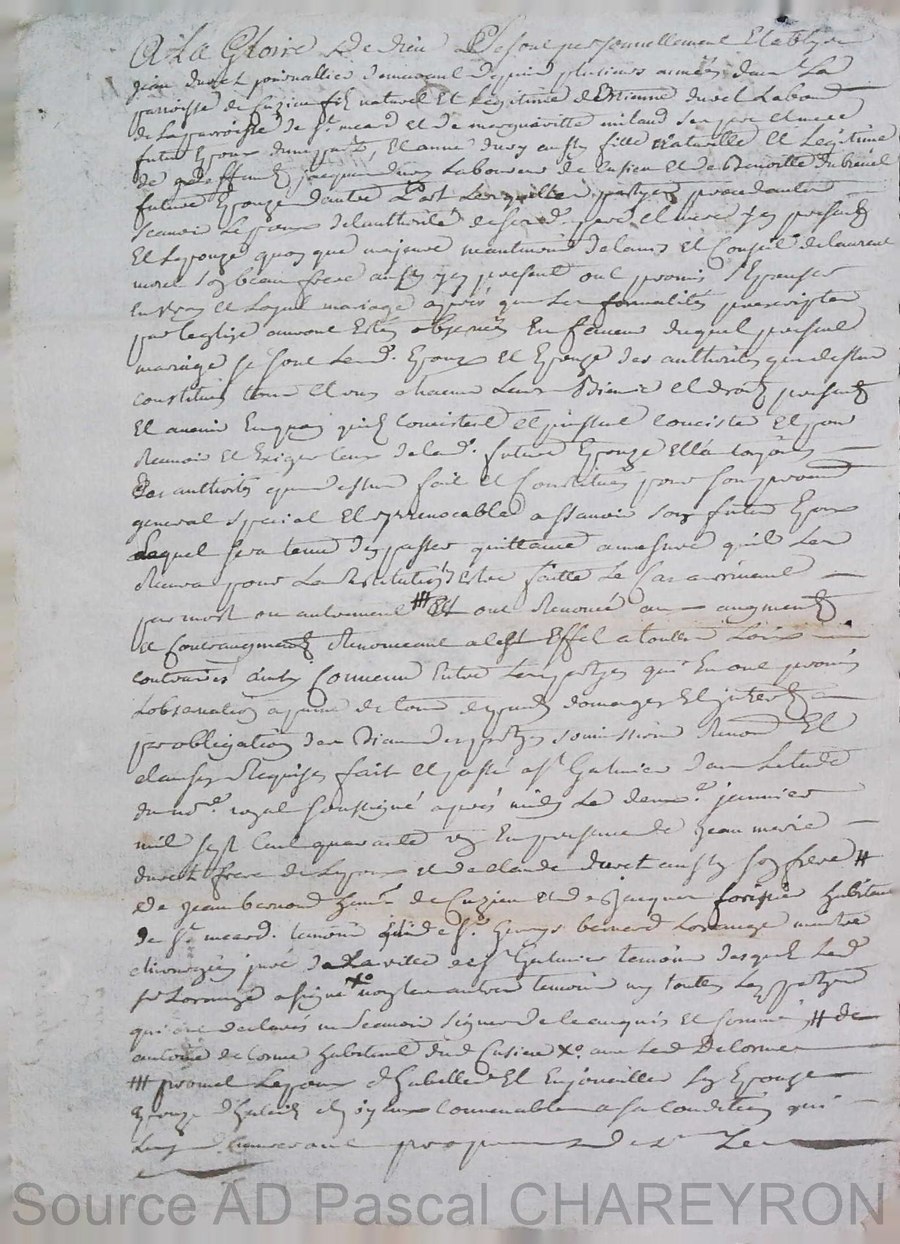 A La Gloire de dieu Se sont personnellement Etablys
Jean duret journallier demeurant depuis plusieurs années dans La
parroisse de Cuzieu fils naturel Et Legitime d'Estienne duret Labou
de La parroisse de St. meard et de margueritte miland ses pere et mere
futur Epoux d'une part, Et anne aussy fille naturelle Et Legitime
de deffunt jacques Laboureur de Cusieu Et de Benoitte dubreuil
future Epouze d'autre part Lesquelles partyes procedantes
scavoir Le futur de L'authorité de ses d. pere et mere icy presents
Et L'epouze quoy que majeure neantmoins de L'avis et Conseil de Laurent
son beau frere aussy icy present ont promis s'Epouser
En vray et Loyal mariage après que Les formalités prescriptes
par l'eglise auront Estés observés En faveur duquel present
mariage se sont Les d. Epoux et Epouze des authorités que dessus
constitués tous et uns chacuns Leurs Biens et droits presents
Et avenir En quoy qu'ils consistent et puissent consister et pour
Recevoir et Exiger ceux de La d. future Epouze Ella toujours
Des authorités que dessus fait et Constitué pour son procureur
general special Et irrevocable assavoir son futur Epoux
Lequel sera tenu d'en passer quittance a mesure qu'il Les
Recevra pour La Restitution Estre faitte Le Cas arrivant
par mort ou autrement ### Et ont Renoncé aux augments
et Contraugments Renonceant a cest Effet a toutes Loix
contraires ainsy Convenu Entre Les partyes qui En ont promis
L'observation a peine de tous depends domages Et interests
par obligation des Biens des partyes soumissions Renon. Et
clauses Requises fait et passé a St. Galmier dans L'etude
du no.re royal soussigné après midy Le deux.e janvier
mil sept Cent quarante En presence de jean marie
duret frere de L'epoux et de claude duret aussy son frere #
De jean bernard ham. de Cuzieu et de jacques forissier habitant
de St. meard. temoins de Sr. George bernard Loranage maitre
chirurgien juré de La ville de St. Galmier temoins Lesquels Led
sr Loranage a signé xo non Les autres temoins ny touttes Les partyes
qui ont declarés ne scavoir signer de ce enquis et sommé # de
antoine de Lorme habitant dud Cusieu xo. avec Led DeLorme
### promet L'epoux d'habeller Et Enjoueiller Son Epouze
Epouze d'habits et joyaux Convenables a sa Condition qui
Luy demeureront propres
Source AD Pascal CHAREYRON